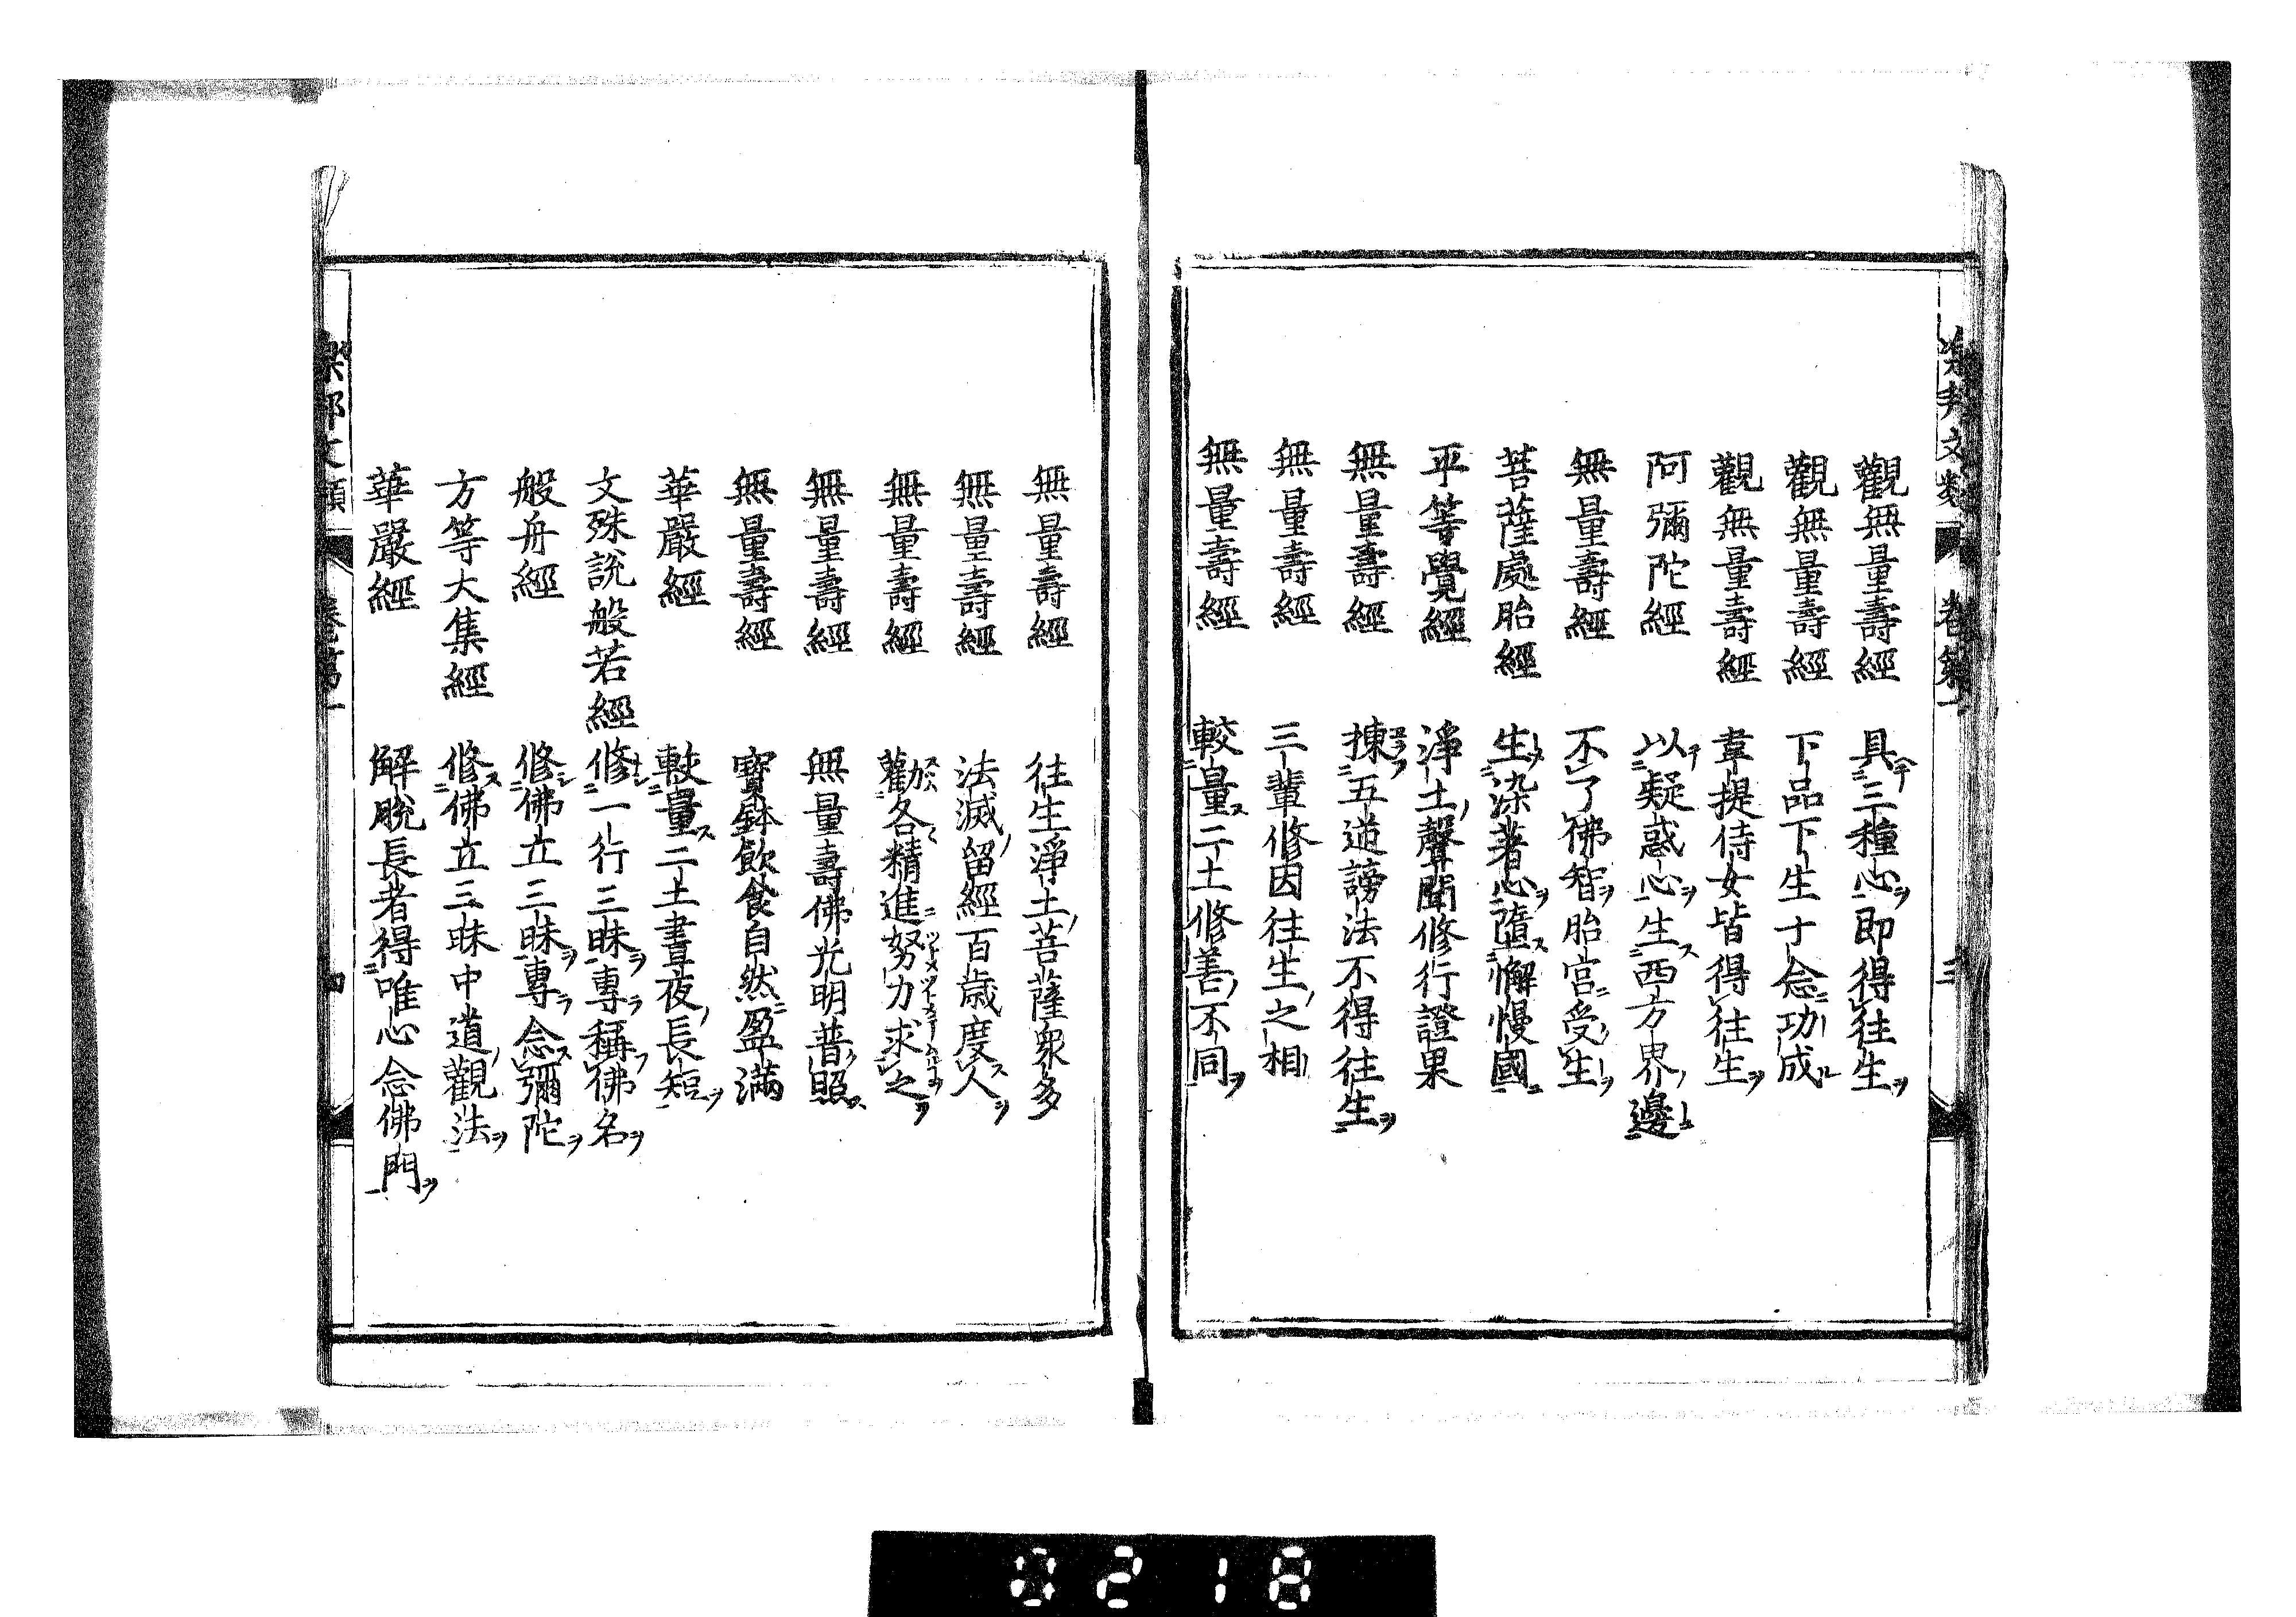 樂邦文類 卷第一 三
觀無量壽經 具三種心即得往生
觀無量壽經 下品下生十念功成
觀無量壽經 韋提侍女皆得往生
阿彌陀經 以疑惑心生西方界邊
無量壽經 不了佛智胎宮受生
菩薩處胎經 生染著心墮懈慢國
平等覺經 淨土聲聞修行證果
無量壽經 揀五道謗法不得往生
無量壽經 三輩修因往生之相
無量壽經 較量二土修善不同
無量壽經 往生淨土菩薩衆多
無量壽經 法滅留經百歲度人
無量壽經 勸各精進努力求之
無量壽經 無量壽佛光明普照
無量壽經 寶鉢飲食自然盈滿
華嚴經 較量二土晝夜長短
文殊說般若經 修一行三昧專稱佛名
般舟經 修佛立三昧專念彌陀
方等大集經 修佛立三昧中道觀法
華嚴經 解脫長者得唯心念佛門
樂邦文類 卷第一 四
0218